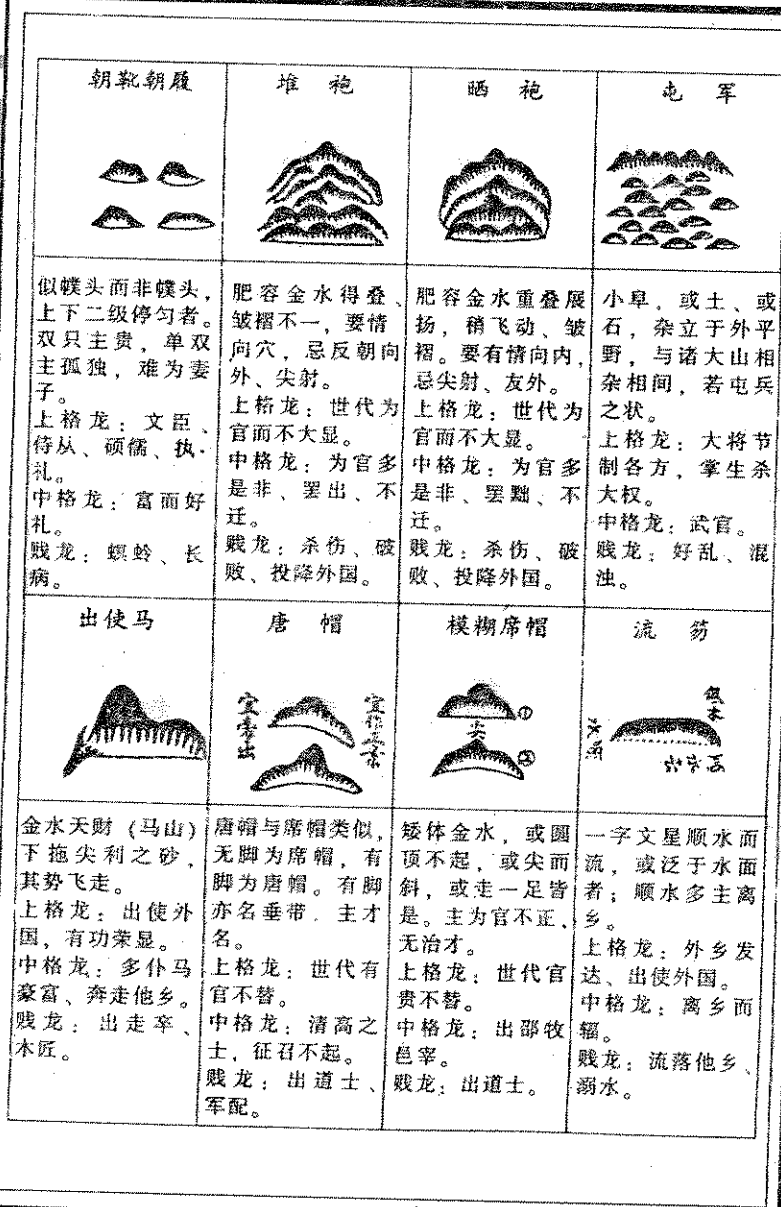 朝靴朝履
似幞头而非幞头，
上下二级停匀者。
双只主贵，单双
主孤独，难为妻
子。
上格龙：文臣、
侍从、硕儒、执
礼。
中格龙：富而好
礼。
贱龙：螟蛉、长
病。
堆 袍
肥容金水得叠、
皱褶不一，要情
向穴，忌反朝向
外、尖射。
上格龙：世代为
官而不大显。
中格龙：为官多
是非、罢出、不
迁。
贱龙：杀伤、破
败、投降外国。
晒 袍
肥容金水重叠展
扬，稍飞动、皱
褶。要有情向内，
忌尖射、友外。
上格龙：世代为
官而不大显。
中格龙：为官多
是非、罢黜、不
迁。
贱龙：杀伤、破
败、投降外国。
屯 军
小阜，或土、或
石，杂立于外平
野，与诸大山相
杂相间，若屯兵
之状。
上格龙：大将节
制各方，掌生杀
大权。
中格龙：武官。
贱龙：好乱、混
浊。
出使马
金水天财（马山）
下拖尖利之砂，
其势飞走。
上格龙：出使外
国，有功荣显。
中格龙：多仆马
豪富、奔走他乡。
贱龙：出走卒、
木匠。
唐 帽
唐帽与席帽类似，
无脚为席帽，有
脚为唐帽。有脚
亦名垂带．主才
名。
上格龙：世代有
官不替。
中格龙：清高之
士，征召不起。
贱龙：出道士、
军配。
模糊席帽
①
尖
②
矮体金水，或圆
顶不起，或尖而
斜，或走一足皆
是。主为官不正、
无治才。
上格龙：世代官
贵不替。
中格龙：出邵牧
邑宰。
贱龙：出道士。
流 笏
一字文星顺水而
流，或泛于水面
者；顺水多主离
乡。
上格龙：外乡发
达、出使外国。
中格龙：离乡而
辐。
贱龙：流落他乡、
溺水。